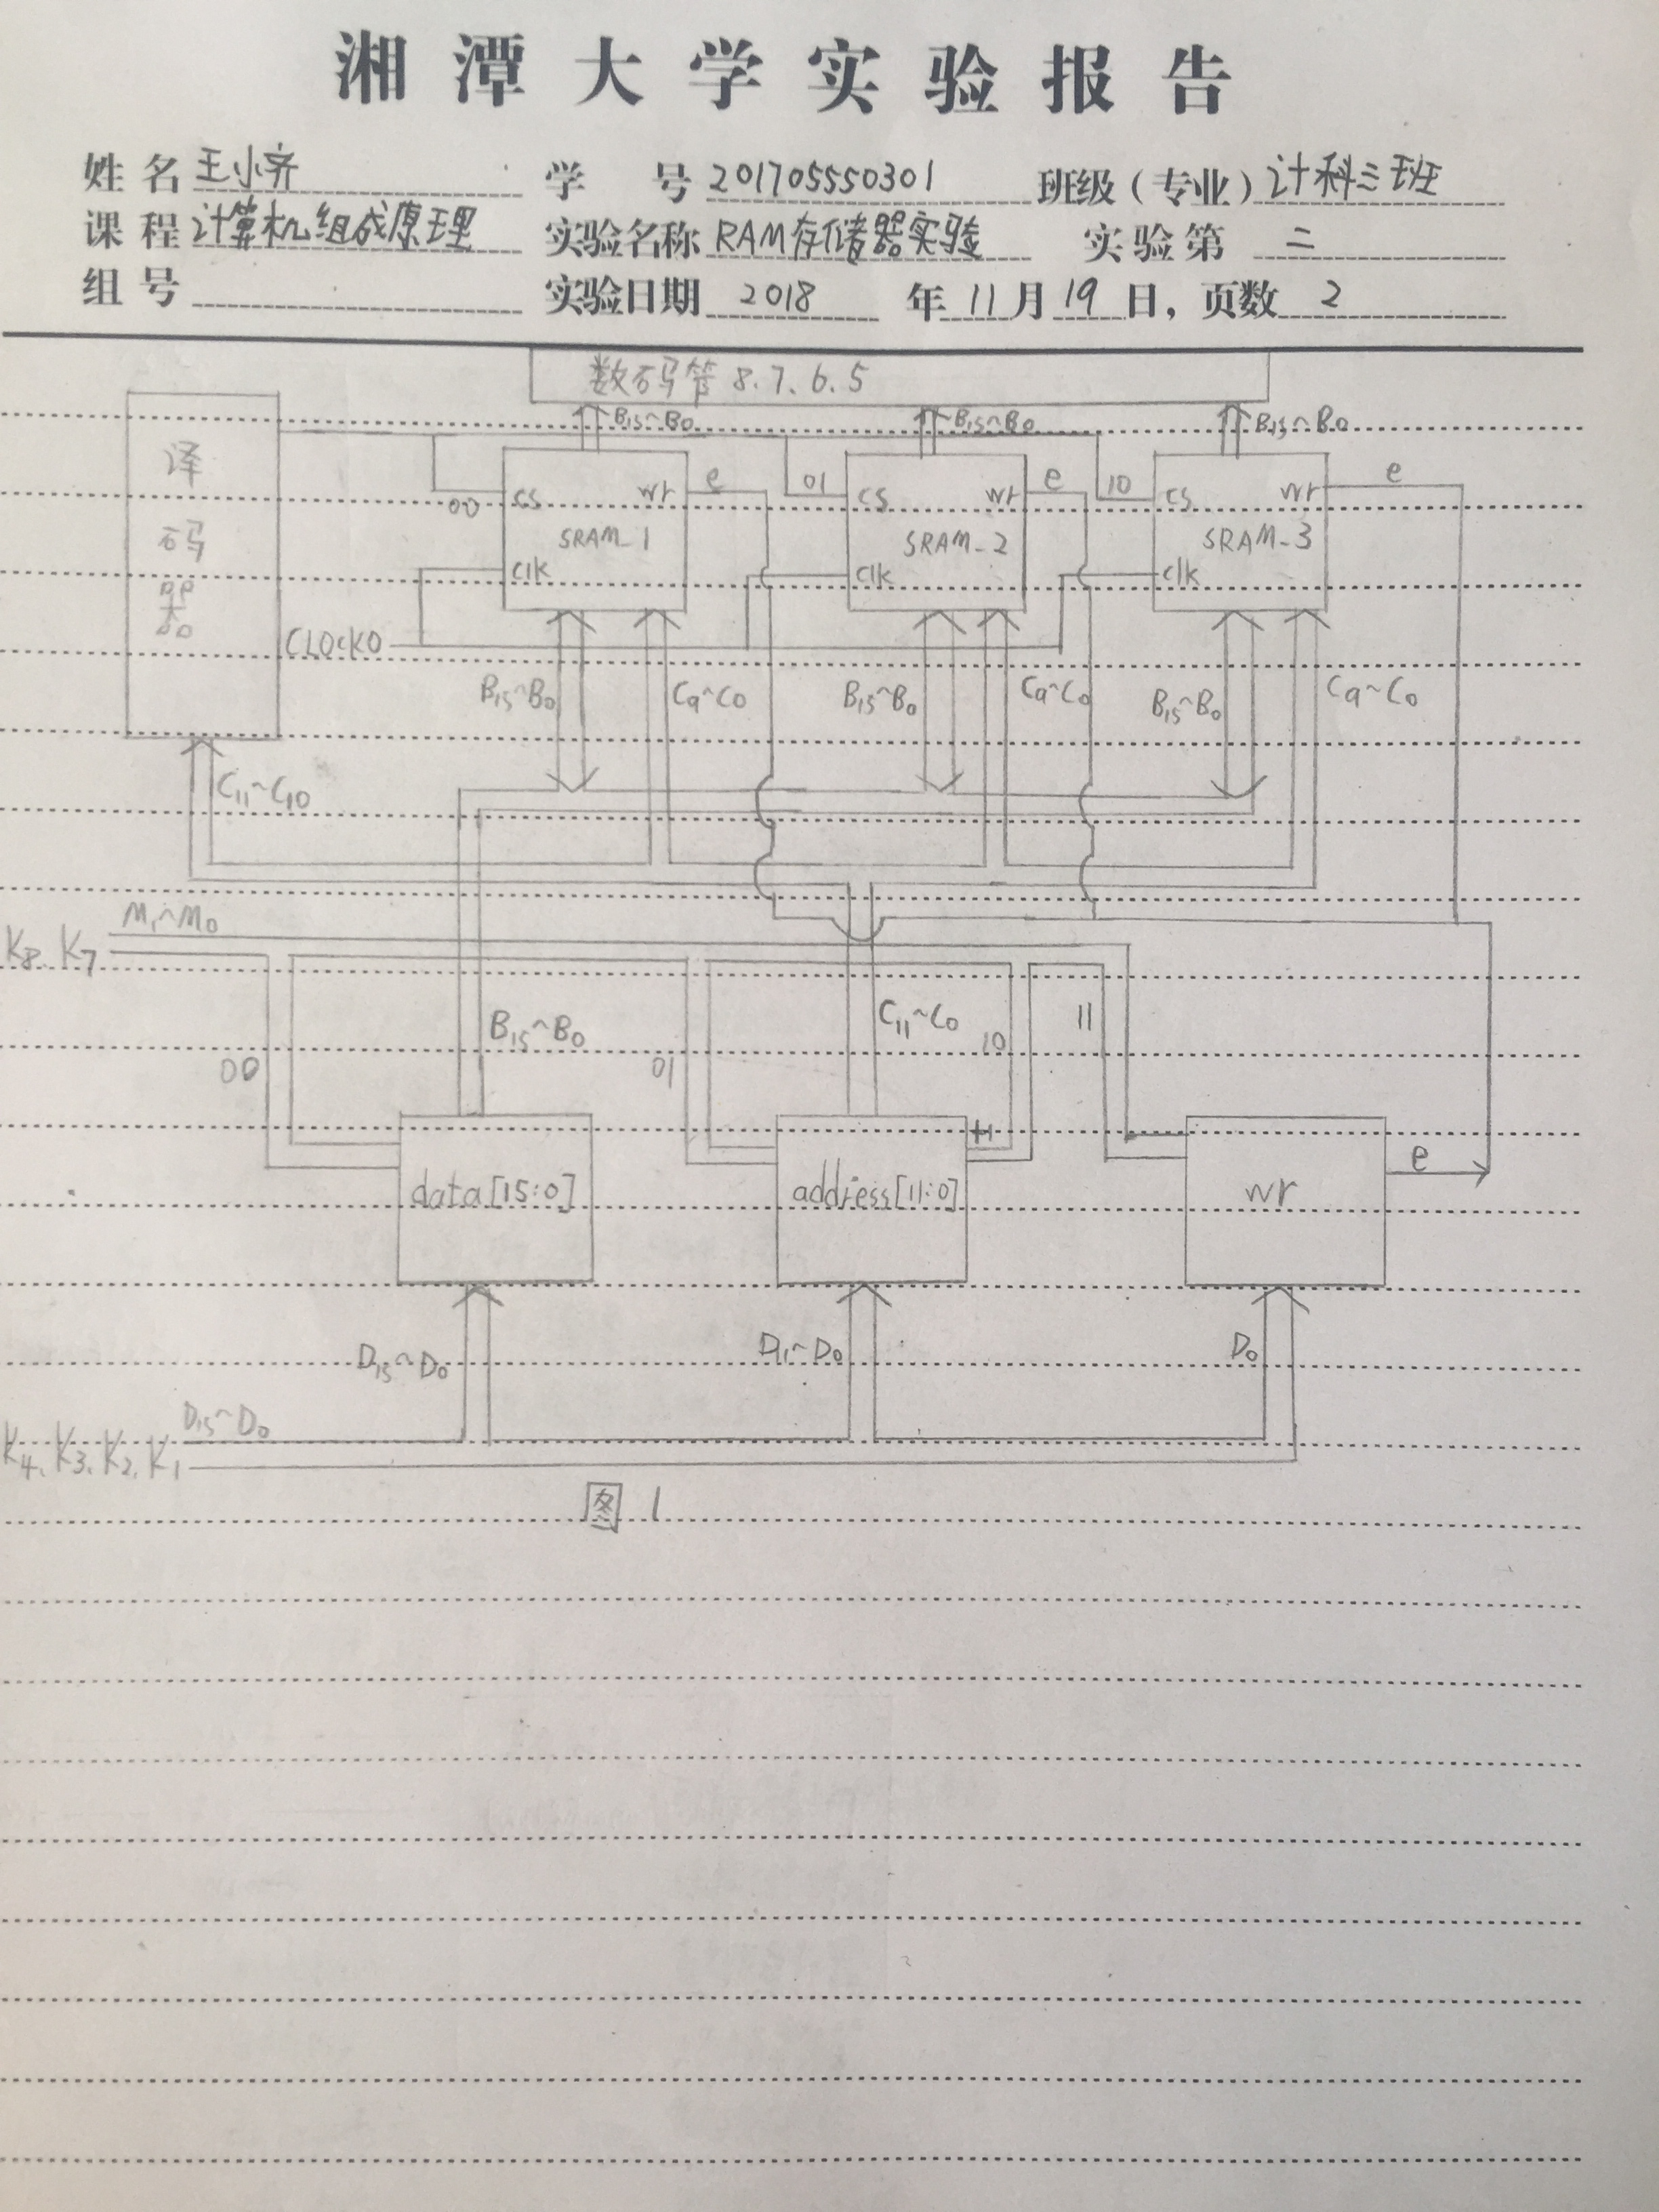 湘潭大学实验报告
姓名 王小齐 学号 201705550301 班级(专业) 计科三班
课程 计算机组成原理 实验名称 RAM存储器实验 实验第 二
组号 实验日期 2018 年 11 月 19 日, 页数 2
数码管 8.7.6.5
B15~B0 B15~B0 B15~B0
译码器
00 cs wr e 01 cs wr e 10 cs wr e
SRAM_1 SRAM_2 SRAM_3
clk clk clk
CLOCK0
B15~B0 C9~C0 B15~B0 C9~C0 B15~B0 C9~C0
C11~C10
M1~M0
K8. K7
B15~B0 C11~C0 10 11
00 01
e
data[15:0] address[11:0] wr
D15~D0 D11~D0 D0
D15~D0
K4. K3. K2. K1
图 1